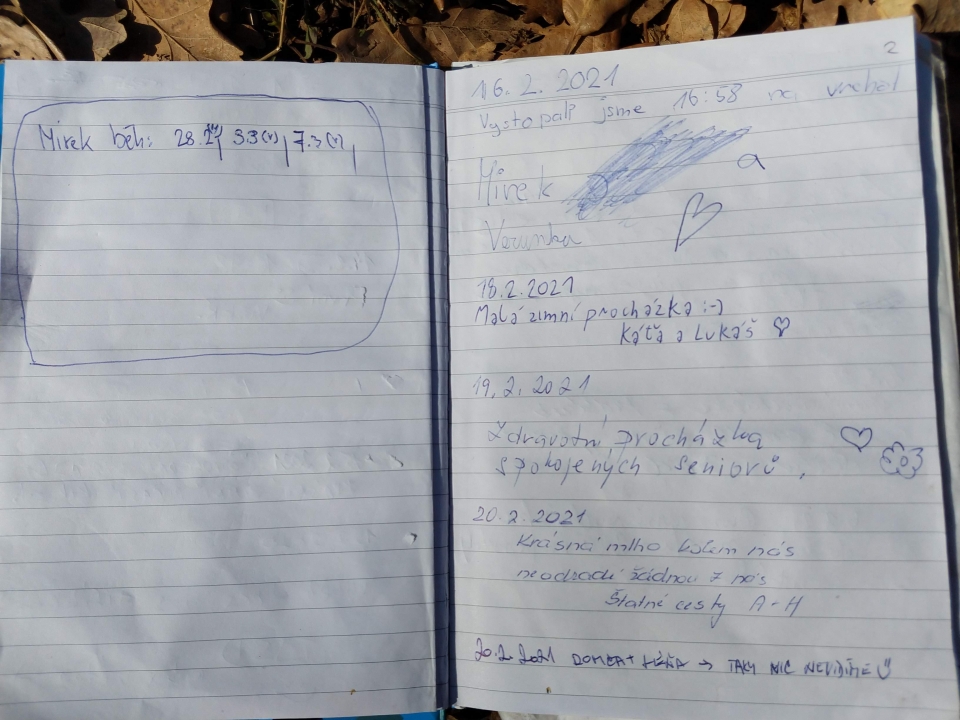 Mirek běh: 28.2 3.3(v), 7.3(v),
2
16. 2. 2021
Vystoupali jsme 16:58 na vrchol
Mirek a
Verunka
18.2.2021
Malá zimní procházka :-)
Káťa a Lukáš
19. 2. 2021
Zdravotní procházka
spokojených seniorů.
20.2.2021
Krásná mlha kolem nás
neodradí žádnou z nás
Štatné cesty A-H
20.2 2021 → TAKY NIC NEVIDÍME